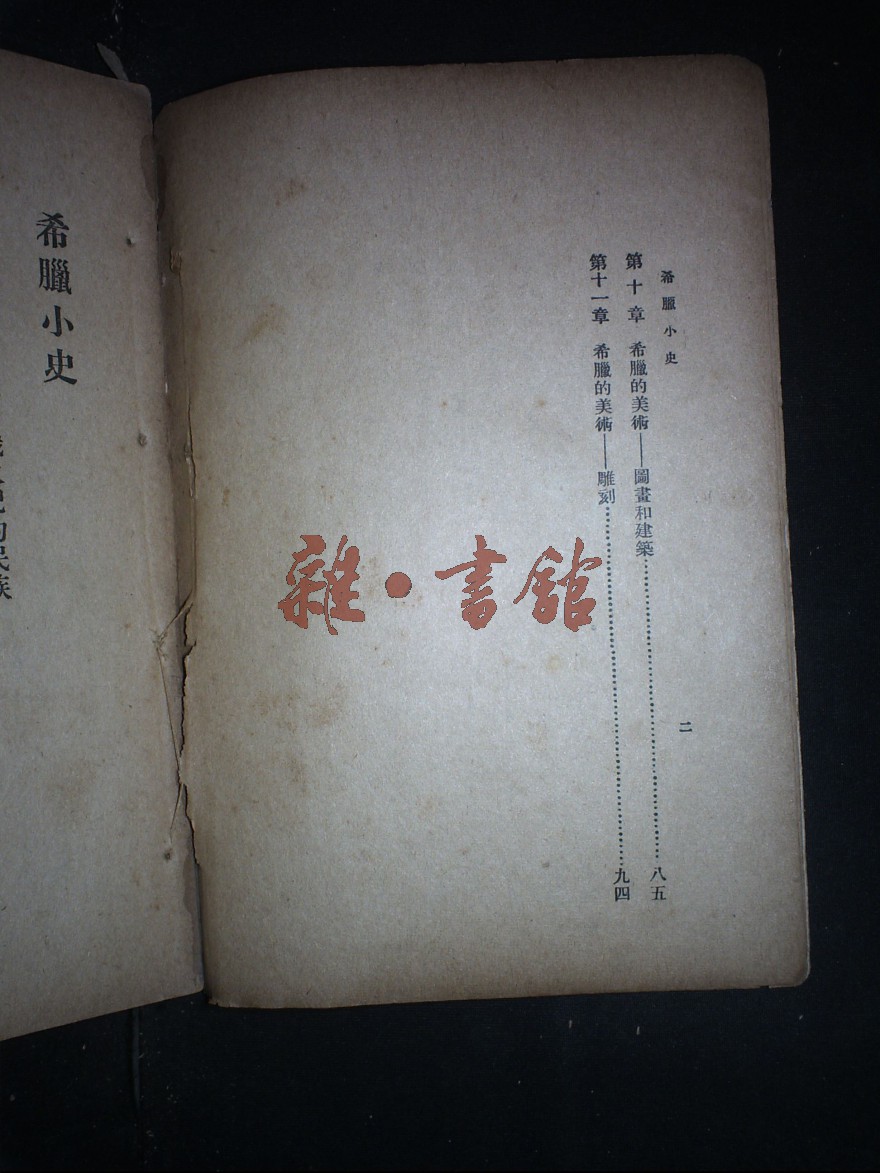 希臘小史
第十章 希臘的美術——圖畫和建築……八五
第十一章 希臘的美術——雕刻……九四
二
希臘小史
的民族
雜·書館